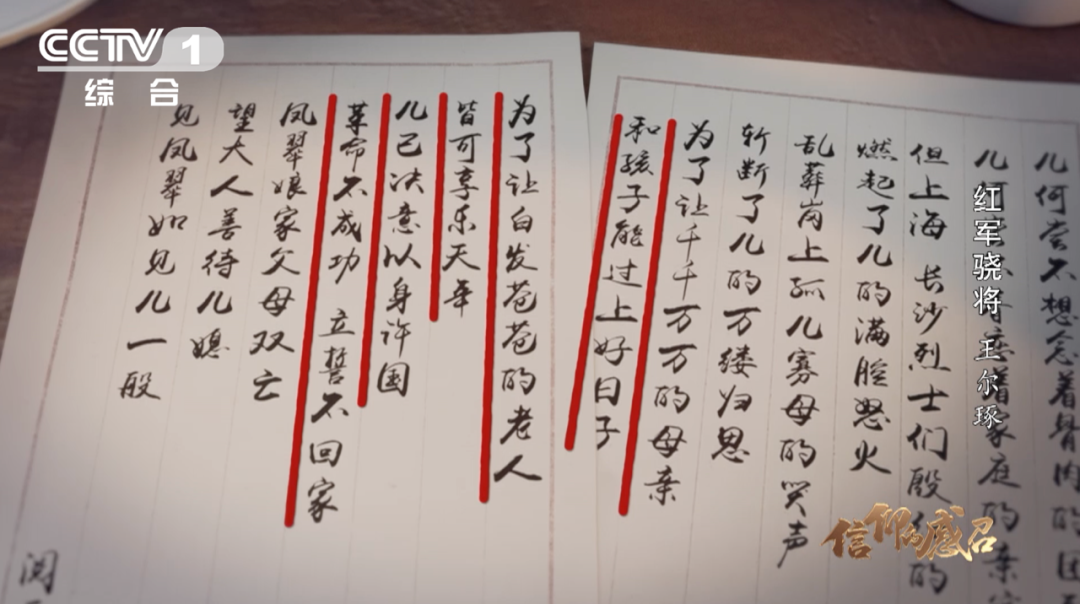 CCTV 1
综合
儿何尝不想念着骨肉的团
儿何 着家庭的亲
但上海 长沙烈士们殷 的
燃起了儿的满脸怒火
乱葬岗上孤儿寡母的哭声
斩断了儿的万缕归思
为了让千千万万的母亲
和孩子能过上好日子
为了让白发苍苍的老人
皆可享乐天年
儿已决意以身许国
革命不成功 立誓不回家
凤翠娘家父母双亡
望大人善待儿媳
见凤翠如见儿一般
阅
红军骁将 王尔琢
信仰的感召